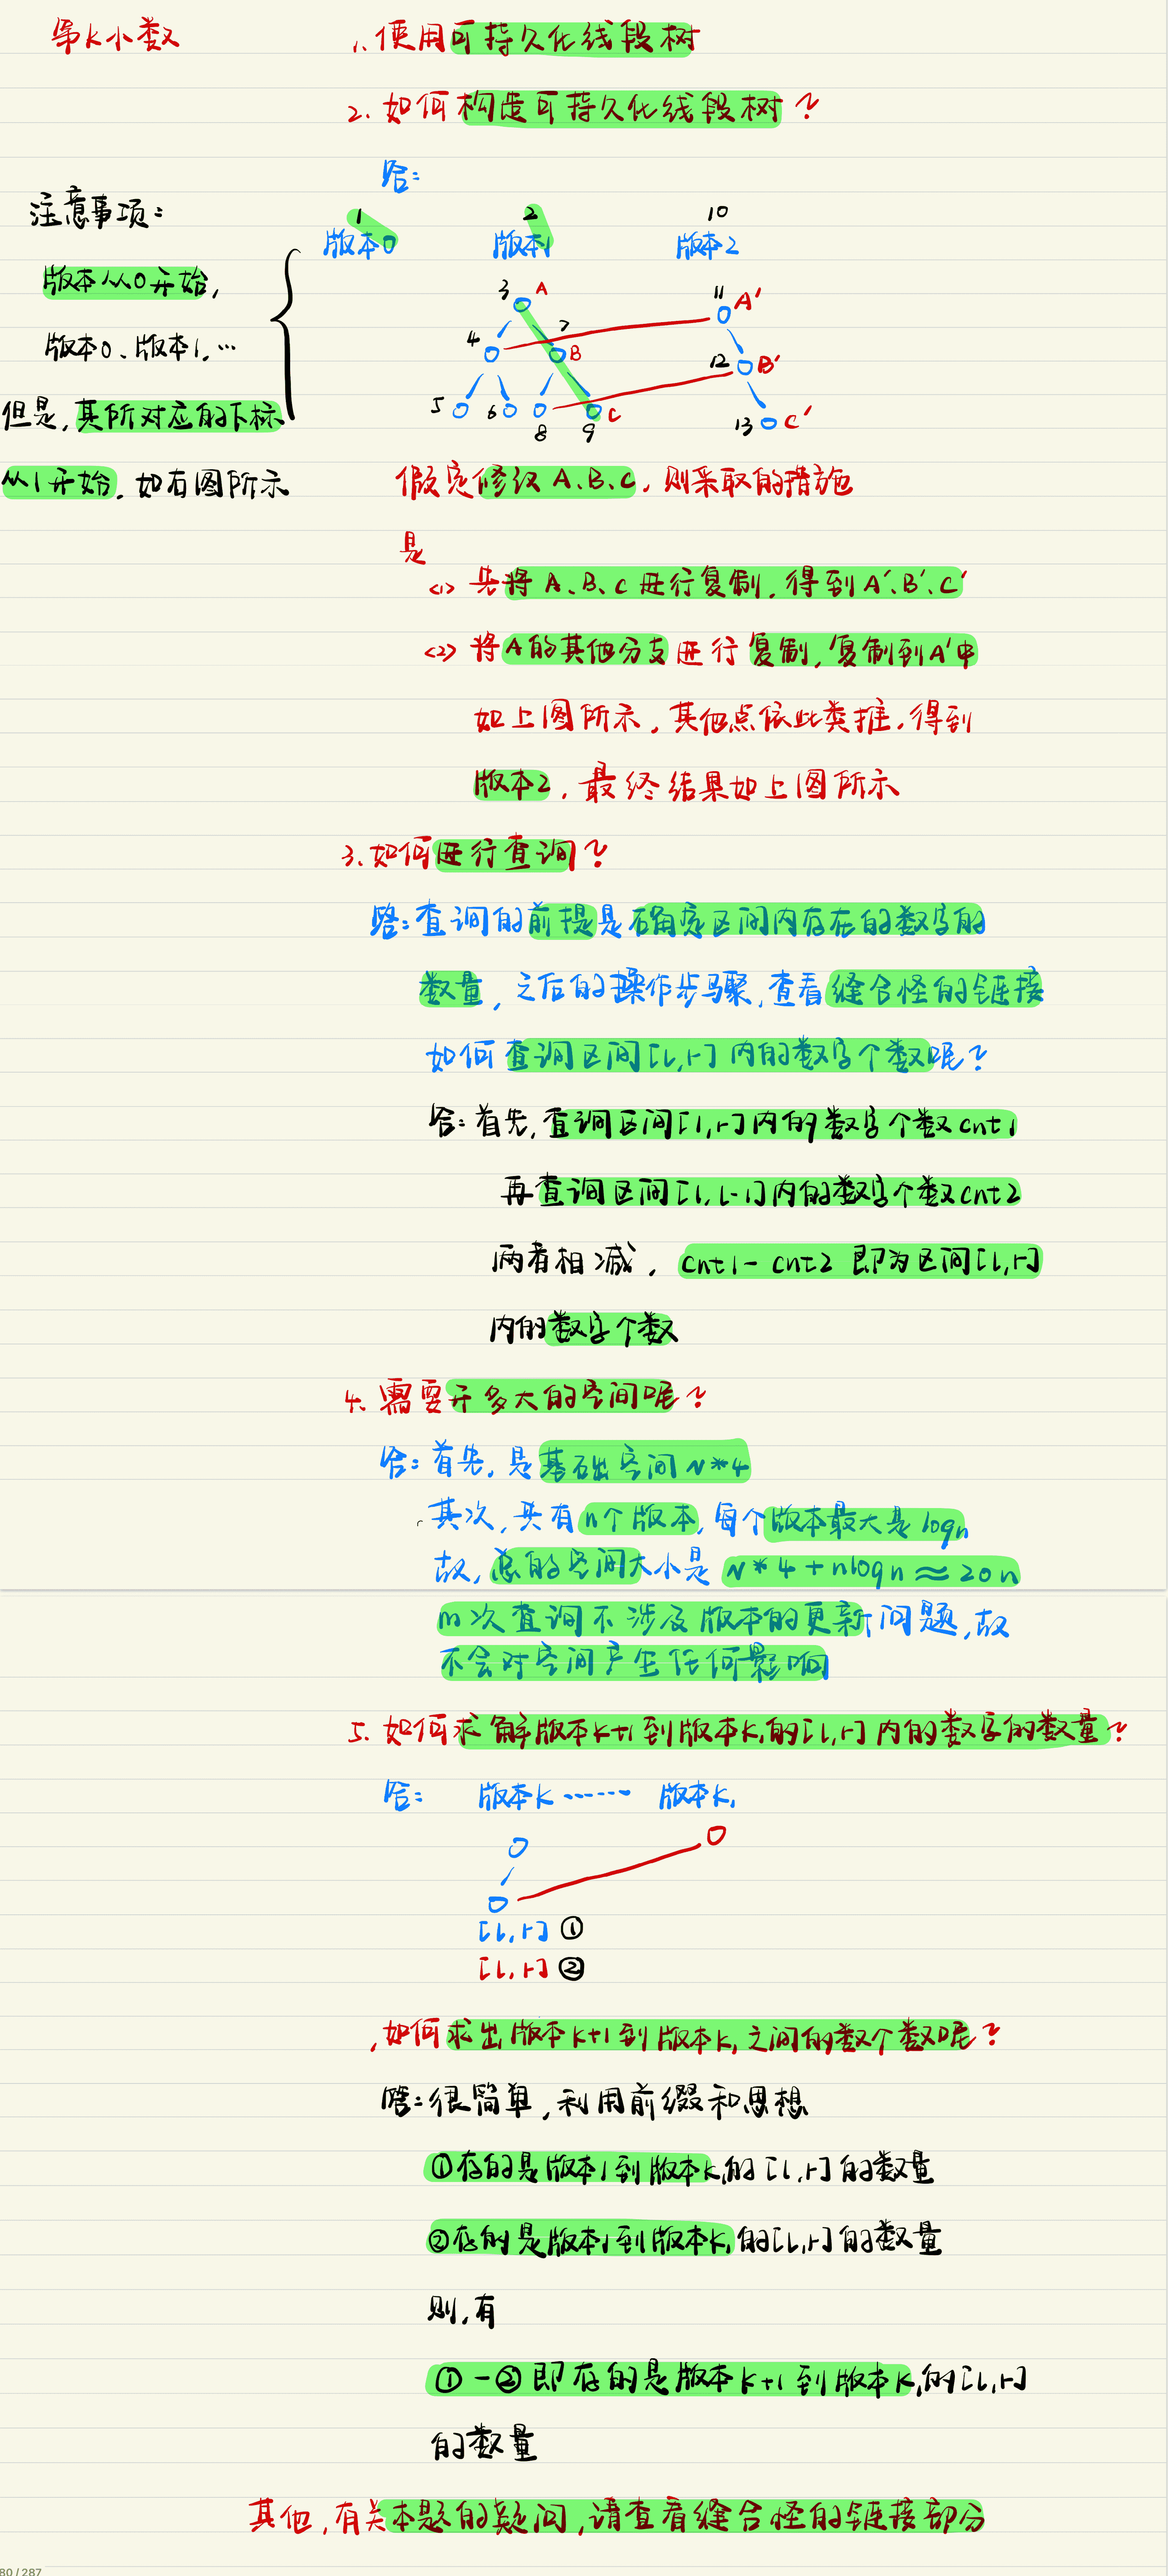 第k小数
1. 使用可持久化线段树
2. 如何构造可持久化线段树?
答:
注意事项:
版本从0开始,
版本0、版本1, …
但是, 其所对应的下标
从1开始, 如右图所示
1 2 10
版本0 版本1 版本2
3 A 11 A'
4 7 B 12 B'
5 6 8 9 C 13 C'
假定修改 A、B、C, 则采取的措施
是
<1> 先将 A、B、C 进行复制, 得到 A'、B'、C'
<2> 将 A的其他分支进行复制, 复制到A'中
如上图所示, 其他点依此类推, 得到
版本2, 最终结果如上图所示
3. 如何进行查询?
答: 查询的前提是确定区间内存在的数字的
数量, 之后的操作步骤, 查看缝合怪的链接
如何查询区间[l,r]内的数字个数呢?
答: 首先, 查询区间[1,r]内的数字个数cnt1
再查询区间[1,l-1]内的数字个数cnt2
两者相减, cnt1-cnt2 即为区间[l,r]
内的数字个数
4. 需要开多大的空间呢?
答: 首先, 是基础空间 N*4
其次, 共有n个版本, 每个版本最大是 logn
故, 总的空间大小是 N*4+nlogn≈20n
m次查询不涉及版本的更新问题, 故
不会对空间产生任何影响
5. 如何求解版本k+1到版本k₁的[l,r]内的数字的数量?
答: 版本k …… 版本k₁
[l,r] ①
[l,r] ②
, 如何求出版本k+1到版本k₁之间的数个数呢?
答: 很简单, 利用前缀和思想
①存的是版本1到版本k的[l,r]的数量
②存的是版本1到版本k₁的[l,r]的数量
则, 有
①-②即存的是版本k+1到版本k₁的[l,r]
的数量
其他, 有关本题的疑问, 请查看缝合怪的链接部分
80 / 287